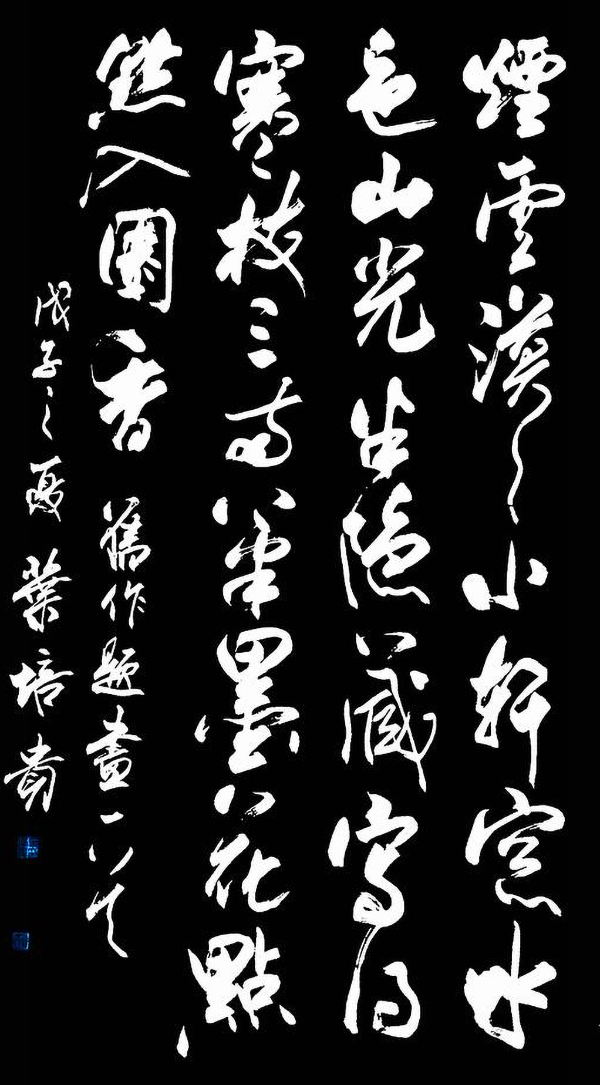 煙雲漠々小軒窓水
色山光半隱藏寫得
寒枝三兩筆墨花點
點入香 舊作題畫一首
戊子之夏 葉培貴